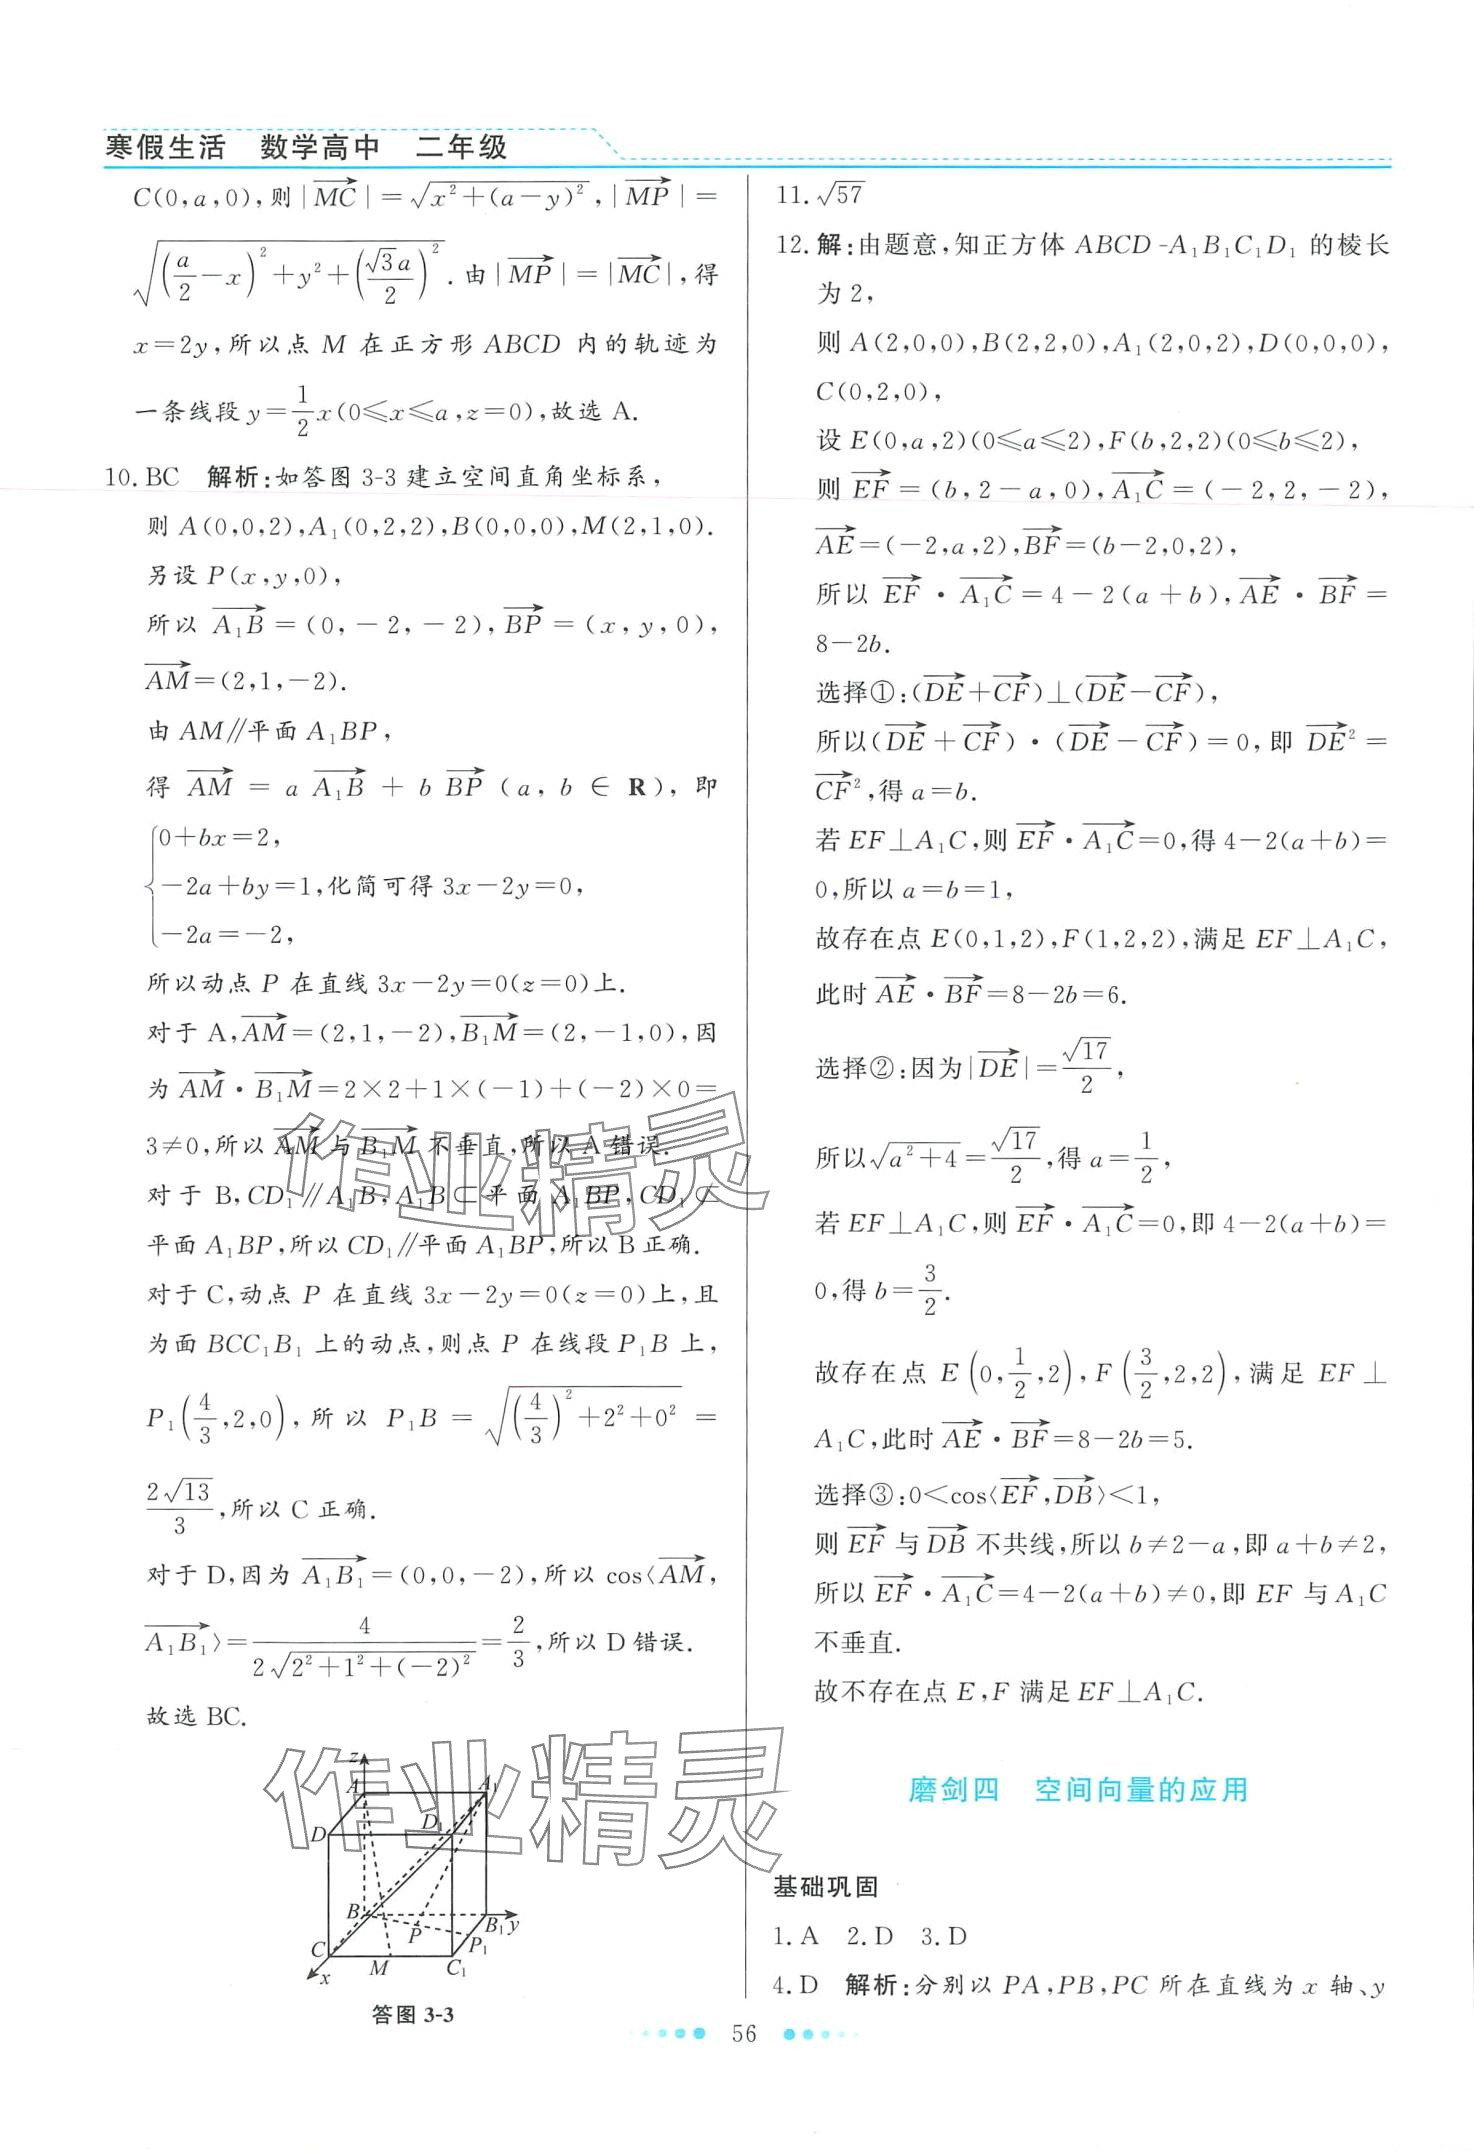 寒假生活 数学高中 二年级
C(0,a,0),则|MC→|=√(x²+(a-y)²),|MP→|=
√((a/2-x)²+y²+(√3a/2)²).由|MP→|=|MC→|,得
x=2y,所以点 M 在正方形 ABCD 内的轨迹为
一条线段 y=1/2x(0≤x≤a,z=0),故选 A.
10. BC 解析:如答图 3-3 建立空间直角坐标系,
则 A(0,0,2),A₁(0,2,2),B(0,0,0),M(2,1,0).
另设 P(x,y,0),
所以 A₁B→=(0,-2,-2),BP→=(x,y,0),
AM→=(2,1,-2).
由 AM∥平面 A₁BP,
得 AM→ = a A₁B→ + b BP→ (a, b ∈ R), 即
{0+bx=2,
-2a+by=1,化简可得 3x-2y=0,
-2a=-2,
所以动点 P 在直线 3x-2y=0(z=0)上.
对于 A,AM→=(2,1,-2),B₁M→=(2,-1,0),因
为 AM→·B₁M→=2×2+1×(-1)+(-2)×0=
3≠0,所以 AM→ 与 B₁M→ 不垂直,所以 A 错误.
对于 B,CD₁∥A₁B,A₁B⊂平面 A₁BP,CD₁⊄
平面 A₁BP,所以 CD₁∥平面 A₁BP,所以 B 正确.
对于 C,动点 P 在直线 3x-2y=0(z=0)上,且
为面 BCC₁B₁ 上的动点,则点 P 在线段 P₁B 上,
P₁(4/3,2,0),所以 P₁B=√((4/3)²+2²+0²)=
2√13/3,所以 C 正确.
对于 D,因为 A₁B₁→=(0,0,-2),所以 cos⟨AM→,
A₁B₁→⟩=4/(2√(2²+1²+(-2)²))=2/3,所以 D 错误.
故选 BC.
z
A A₁
D D₁
B B₁ y
P P₁
C M C₁
x
答图 3-3
11. √57
12. 解:由题意,知正方体 ABCD-A₁B₁C₁D₁ 的棱长
为 2,
则 A(2,0,0),B(2,2,0),A₁(2,0,2),D(0,0,0),
C(0,2,0),
设 E(0,a,2)(0≤a≤2),F(b,2,2)(0≤b≤2),
则 EF→=(b,2-a,0),A₁C→=(-2,2,-2),
AE→=(-2,a,2),BF→=(b-2,0,2),
所以 EF→·A₁C→=4-2(a+b),AE→·BF→=
8-2b.
选择①:(DE→+CF→)⊥(DE→-CF→),
所以(DE→+CF→)·(DE→-CF→)=0,即 DE→²=
CF→²,得 a=b.
若 EF⊥A₁C,则 EF→·A₁C→=0,得 4-2(a+b)=
0,所以 a=b=1,
故存在点 E(0,1,2),F(1,2,2),满足 EF⊥A₁C,
此时 AE→·BF→=8-2b=6.
选择②:因为|DE→|=√17/2,
所以√(a²+4)=√17/2,得 a=1/2,
若 EF⊥A₁C,则 EF→·A₁C→=0,即 4-2(a+b)=
0,得 b=3/2.
故存在点 E(0,1/2,2),F(3/2,2,2),满足 EF⊥
A₁C,此时 AE→·BF→=8-2b=5.
选择③:0<cos⟨EF→,DB→⟩<1,
则 EF→ 与 DB→ 不共线,所以 b≠2-a,即 a+b≠2,
所以 EF→·A₁C→=4-2(a+b)≠0,即 EF 与 A₁C
不垂直.
故不存在点 E,F 满足 EF⊥A₁C.
磨剑四 空间向量的应用
基础巩固
1. A 2. D 3. D
4. D 解析:分别以 PA,PB,PC 所在直线为 x 轴、y
56
作业精灵
作业精灵